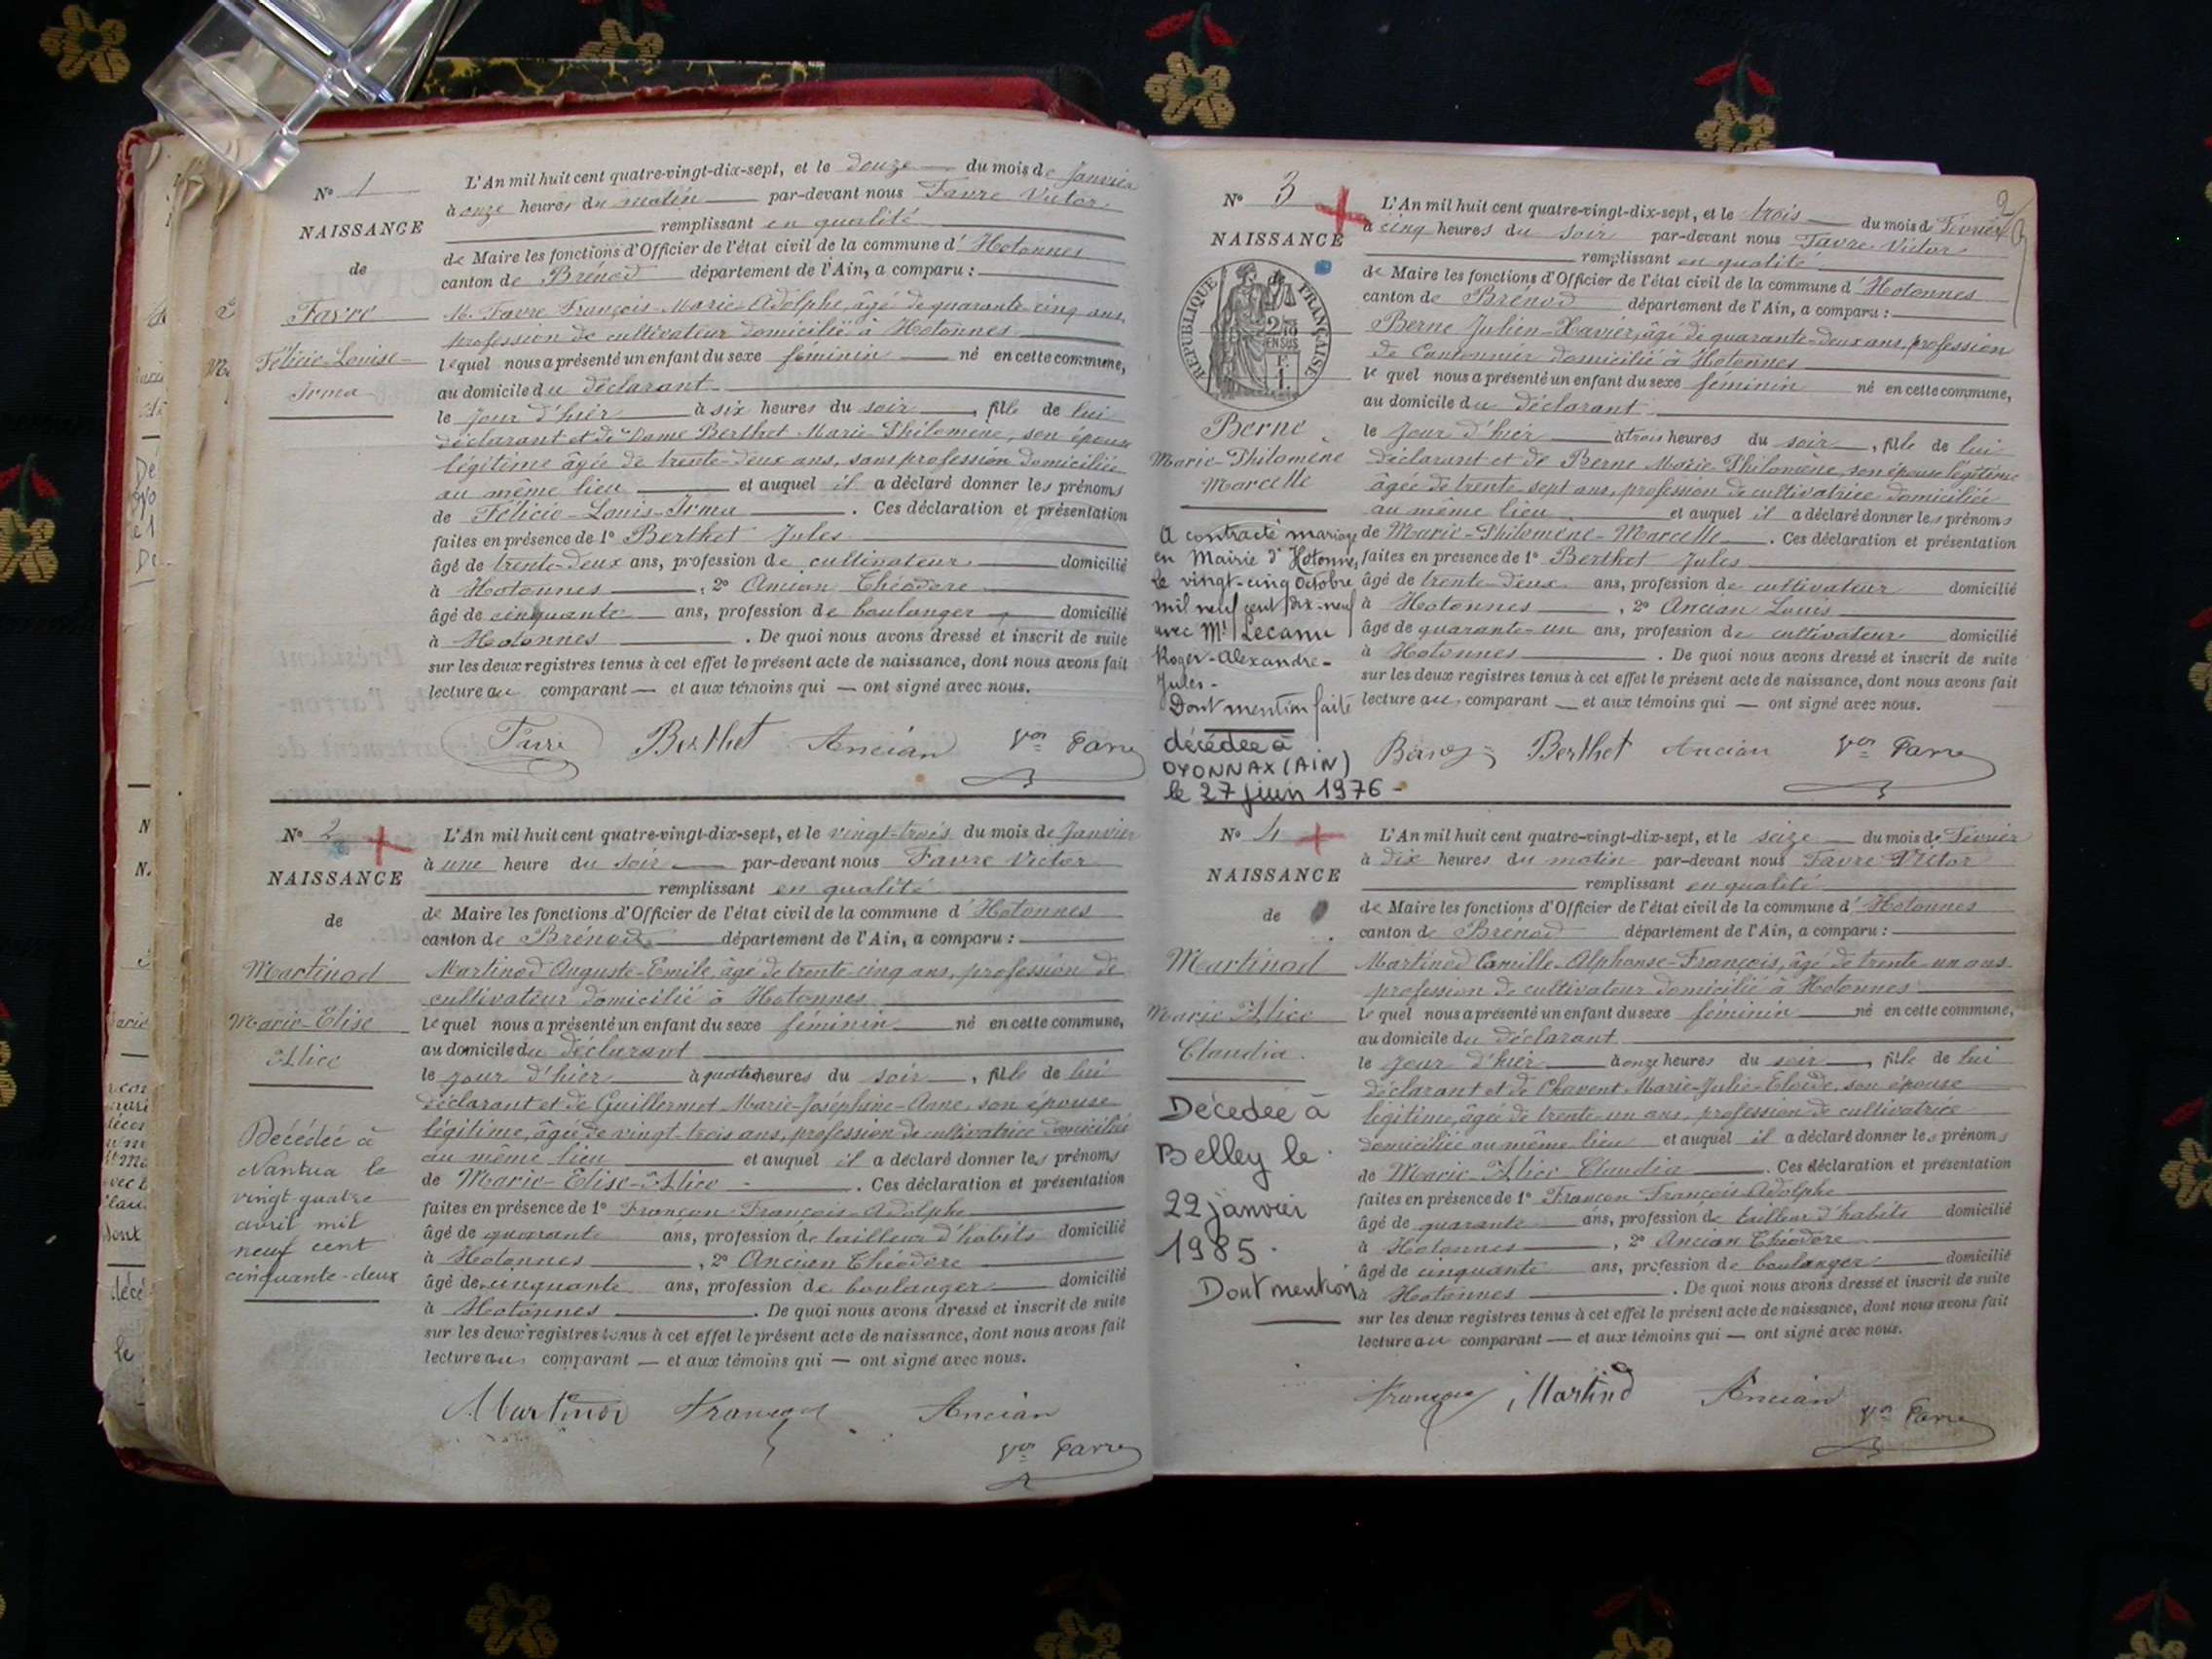 N° 1
NAISSANCE
de
Favre
Félicie-Louise-
Irma
L'An mil huit cent quatre-vingt-dix-sept, et le douze du mois de Janvier
à onze heures du matin par-devant nous Favre Victor
remplissant en qualité
de Maire les fonctions d'Officier de l'état civil de la commune d'Hotonnes
canton de Brénod département de l'Ain, a comparu :
M. Favre François-Marie-Adolphe, âgé de quarante-cinq ans,
profession de cultivateur domicilié à Hotonnes
lequel nous a présenté un enfant du sexe féminin né en cette commune,
au domicile du déclarant
le jour d'hier à six heures du soir, fille de lui
déclarant et de Dame Berthet Marie-Philomène, son épouse
légitime âgée de trente-deux ans, sans profession domiciliée
au même lieu et auquel il a déclaré donner les prénoms
de Félicie-Louis-Irma. Ces déclaration et présentation
faites en présence de 1° Berthet Jules
âgé de trente-deux ans, profession de cultivateur domicilié
à Hotonnes, 2° Ancian Théodore
âgé de cinquante ans, profession de boulanger domicilié
à Hotonnes. De quoi nous avons dressé et inscrit de suite
sur les deux registres tenus à cet effet le présent acte de naissance, dont nous avons fait
lecture au comparant — et aux témoins qui — ont signé avec nous.
Favre Berthet Ancian Vor Favre
N° 2
NAISSANCE
de
Martinod
Marie-Elise
Alice
Décédée à
Nantua le
vingt quatre
avril mil
neuf cent
cinquante-deux
L'An mil huit cent quatre-vingt-dix-sept, et le vingt-trois du mois de Janvier
à une heure du soir par-devant nous Favre Victor
remplissant en qualité
de Maire les fonctions d'Officier de l'état civil de la commune d'Hotonnes
canton de Brénod département de l'Ain, a comparu :
Martinod Auguste-Emile, âgé de trente-cinq ans, profession de
cultivateur domicilié à Hotonnes
lequel nous a présenté un enfant du sexe féminin né en cette commune,
au domicile du déclarant
le jour d'hier à quatre heures du soir, fille de lui
déclarant et de Guillermet Marie-Joséphine-Anne, son épouse
légitime, âgée de vingt-trois ans, profession de cultivatrice domiciliée
au même lieu et auquel il a déclaré donner les prénoms
de Marie-Elise-Alice. Ces déclaration et présentation
faites en présence de 1° Françon François-Adolphe
âgé de quarante ans, profession de tailleur d'habits domicilié
à Hotonnes, 2° Ancian Théodore
âgé de cinquante ans, profession de boulanger domicilié
à Hotonnes. De quoi nous avons dressé et inscrit de suite
sur les deux registres tenus à cet effet le présent acte de naissance, dont nous avons fait
lecture au comparant — et aux témoins qui — ont signé avec nous.
Martinod Françon Ancian
Vor Favre
2
N° 3
NAISSANCE
de
RÉPUBLIQUE FRANÇAISE
Berne
Marie-Philomène
Marcelle
A contracté mariage
en Mairie d'Hotonnes
le vingt-cinq Octobre
mil neuf cent dix-neuf
avec Mr Lecanu
Roger-Alexandre-
Jules-
Dont mention faite
décédée à
OYONNAX (AIN)
le 27 juin 1976 -
L'An mil huit cent quatre-vingt-dix-sept, et le trois du mois de Février
à cinq heures du soir par-devant nous Favre Victor
remplissant en qualité
de Maire les fonctions d'Officier de l'état civil de la commune d'Hotonnes
canton de Brénod département de l'Ain, a comparu :
Berne Julien-Xavier, âgé de quarante-deux ans, profession
de Cantonnier domicilié à Hotonnes
lequel nous a présenté un enfant du sexe féminin né en cette commune,
au domicile du déclarant
le jour d'hier à trois heures du soir, fille de lui
déclarant et de Berne Marie-Philomène, son épouse légitime
âgée de trente-sept ans, profession de cultivatrice domiciliée
au même lieu et auquel il a déclaré donner les prénoms
de Marie-Philomène-Marcelle. Ces déclaration et présentation
faites en présence de 1° Berthet Jules
âgé de trente-deux ans, profession de cultivateur domicilié
à Hotonnes, 2° Ancian Louis
âgé de quarante-un ans, profession de cultivateur domicilié
à Hotonnes. De quoi nous avons dressé et inscrit de suite
sur les deux registres tenus à cet effet le présent acte de naissance, dont nous avons fait
lecture au comparant — et aux témoins qui — ont signé avec nous.
Berthet Ancian Vor Favre
N° 4
NAISSANCE
de
Martinod
Marie Alice
Claudia
Décédée à
Belley le
22 janvier
1985.
Dont mention
L'An mil huit cent quatre-vingt-dix-sept, et le seize du mois de Février
à dix heures du matin par-devant nous Favre Victor
remplissant en qualité
de Maire les fonctions d'Officier de l'état civil de la commune d'Hotonnes
canton de Brénod département de l'Ain, a comparu :
Martinod Camille-Alphonse-François, âgé de trente-un ans
profession de cultivateur domicilié à Hotonnes
lequel nous a présenté un enfant du sexe féminin né en cette commune,
au domicile du déclarant
le jour d'hier à onze heures du soir, fille de lui
déclarant et de Chavent Marie-Julie-Eloïde, son épouse
légitime, âgée de trente-un ans, profession de cultivatrice
domiciliée au même lieu et auquel il a déclaré donner les prénoms
de Marie-Alice-Claudia. Ces déclaration et présentation
faites en présence de 1° Françon François Adolphe
âgé de quarante ans, profession de tailleur d'habits domicilié
à Hotonnes, 2° Ancian Théodore
âgé de cinquante ans, profession de boulanger domicilié
à Hotonnes. De quoi nous avons dressé et inscrit de suite
sur les deux registres tenus à cet effet le présent acte de naissance, dont nous avons fait
lecture au comparant — et aux témoins qui — ont signé avec nous.
Françon Martinod Ancian
Vor Favre